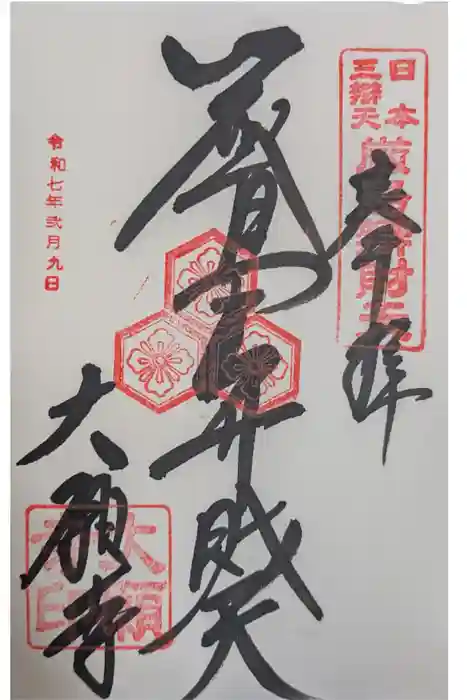 日本
三辯天
厳島辯財天
奉拝
厳島弁財天
令和七年弐月九日
大願寺
大願
寺印